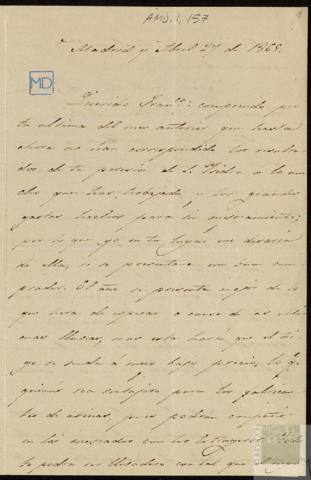 AMD, 1, 157
1
Madrid y Abril 27 de 1865.
MD
Querido Fran.co: comprendo por
tu ultima del mes anterior que hasta
ahora no han correspondido los resulta-
dos de tu posesion de S. Isidro a lo mu-
cho que has trabajado y los grandes
gastos hechos para su mejoramiento;
por lo que yo en tu lugar me desharia
de ella, si se presentase un buen com-
prador. El año se presenta mejor de lo
que era de esperar a causa de las ulti-
mas lluvias, mas esto hará que el tri-
go se venda á muy bajo precio, lo q.
para los fabrican-
tes de arinas, pues podrán competir
en los mercados con los Estrangeros. Todo
te podra ser con tal que